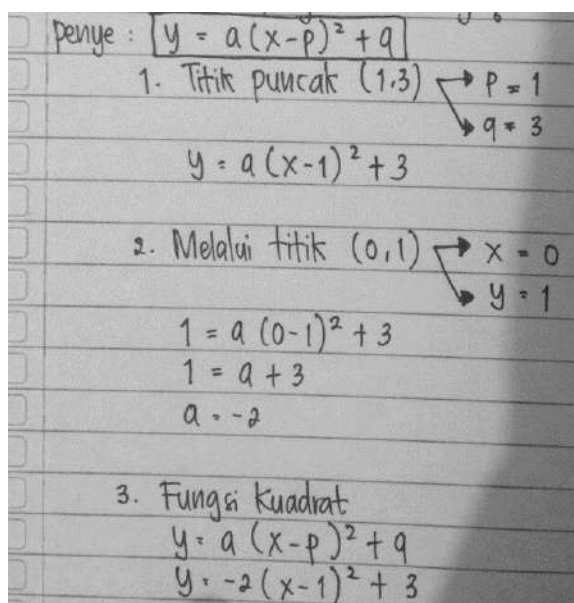 Penye : y = a(x-p)² + q
1. Titik puncak (1,3) → p = 1
→ q = 3
y = a(x-1)² + 3
2. Melalui titik (0,1) → x = 0
→ y = 1
1 = a (0-1)² + 3
1 = a + 3
a = -2
3. Fungsi Kuadrat
y = a (x-p)² + q
y = -2 (x-1)² + 3